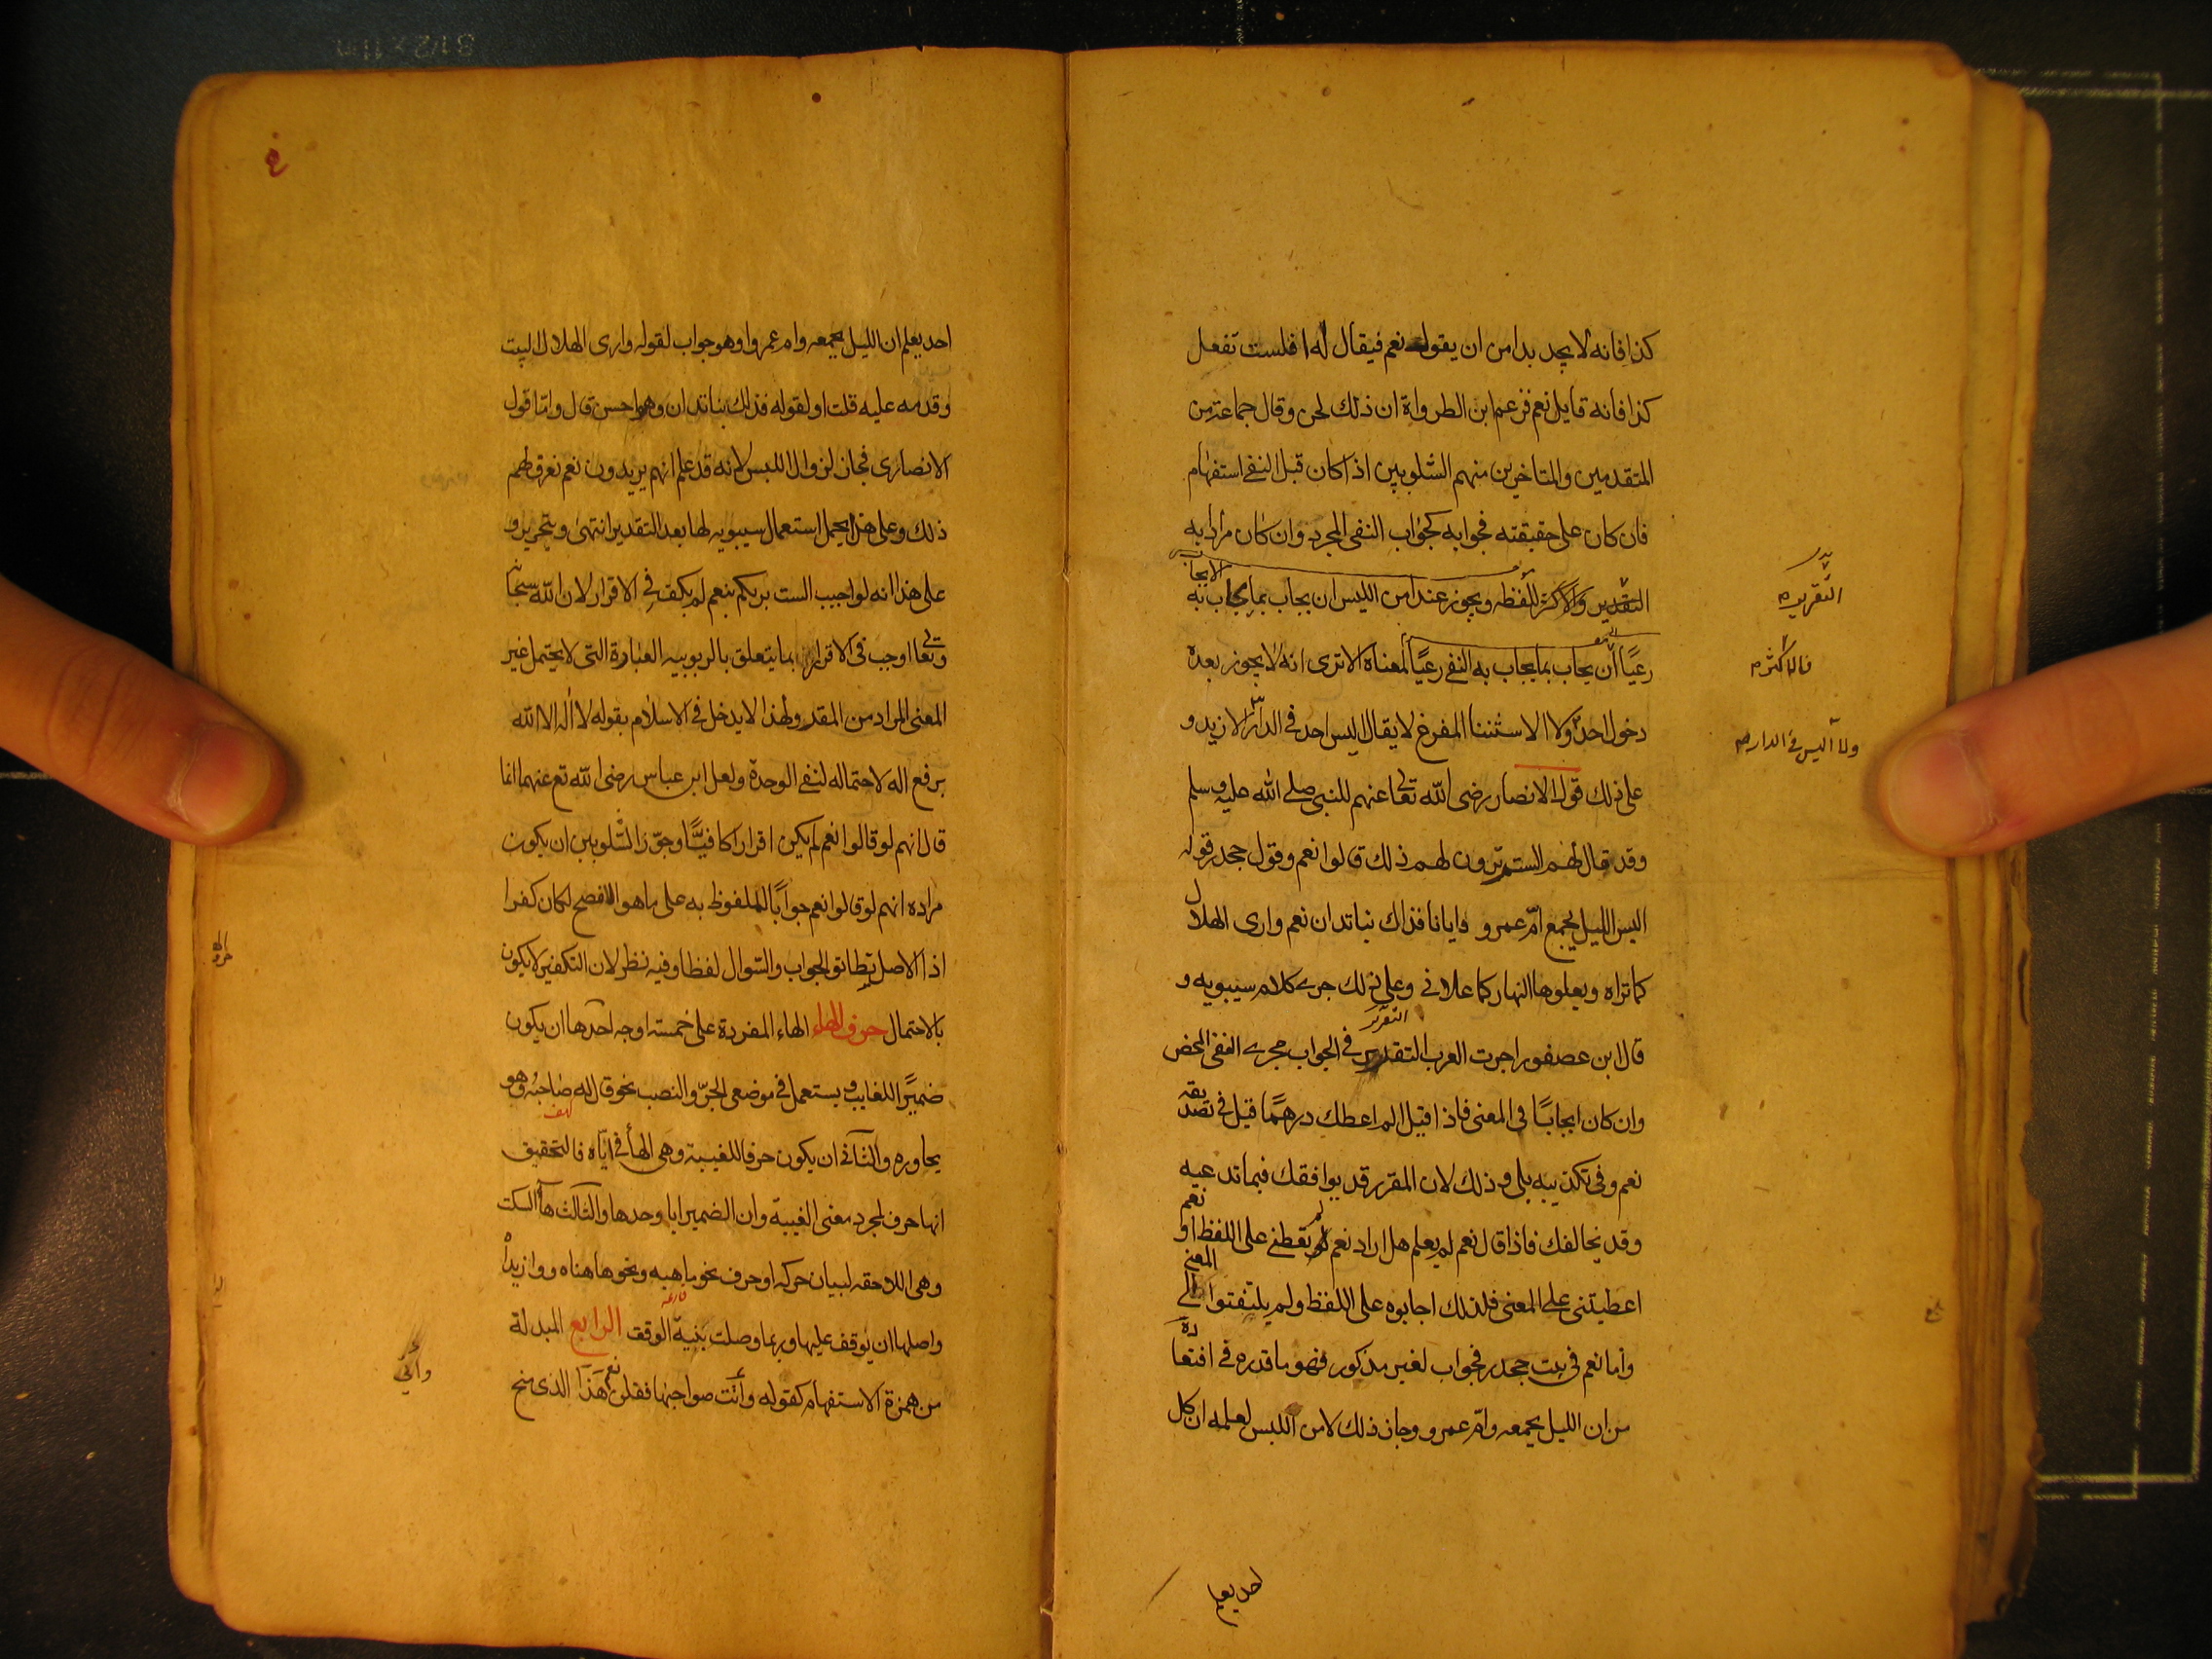 كذا فانه لا يجد بدا من ان يقول نعم فيقال له افلست تفعل
كذا فانه قايل نعم فزعم ابن الطراوة ان ذلك لحن وقال جماعة من
المتقدمين والمتاخرين منهم الشلوبين اذا كان قبل النفي استفهام
فان كان على حقيقته فجوابه كجواب النفي المجرد وان كان مرادا به
التقدير والاكثر للفظه ويجوز عند امن اللبس ان يجاب بما يجاب به
الايجاب
رعيًا ان يجاب بما يجاب به النفي رعيًا لمعناه الا ترى انه لا يجوز بعده
دخول احد ولا الاستثنا المفرغ لا يقال اليس احد في الدار الا زيد و
على ذلك قول الانصار رضى الله تعالى عنهم للنبي صلى الله عليه وسلم
وقد قال لهم الستم ترون لهم ذلك قالوا نعم وقول جحدر قوله
اليس الليل يجمع امّ عمرو وايانا فذاك بنا تدان نعم وارى الهلال
كما تراه ويعلوها النهار كما علانى وعلى ذلك جرى كلام سيبويه و
قال ابن عصفور اجرت العرب التقدير في الجواب مجرى النفى المحض
التقرير
وان كان ايجابًا في المعنى فاذا قيل الم اعطك درهمًا قيل في تصديقه
نعم وفى تكذيبه بلى وذلك لان المقرر قد يوافقك فيما تدعيه
وقد يخالفك فاذا قال نعم لم يعلم هل اراد نعم لم تعطنى على اللفظ او نعم
اعطيتنى على المعنى فلذلك اجابوه على اللفظ ولم يلتفتوا الى المعنى
واما نعم في بيت جحدر فجواب لغير مذكور فهو ما قدره في اعتقاده
من ان الليل يجمعه وامّ عمرو وجاز ذلك لامن اللبس لعلمه ان كل
احد يعلم
التقرير
فالاكثر
ولا اليس في الدار
احد يعلم ان الليل يجمعه وام عمرو او هو جواب لقوله وارى الهلال البيت
وقدمه عليه قلت او لقوله فذلك بنا تدان وهو احسن قال واما قول
الانصارى فجاز لزوال اللبس لانه قد علم انهم يريدون نعم نعرف لهم
ذلك وعلى هذا يحمل استعمال سيبويه لها بعد التقدير انتهى ويتحرر و
على هذا انه لو اجيب الست بربكم بنعم لم يكف في الاقرار لان الله سبحانه
وتعالى اوجب فى الاقرار بما يتعلق بالربوبيه العبارة التى لا يحتمل غير
المعنى المراد من المقدر ولهذا لا يدخل في الاسلام بقوله لا اله الا الله
برفع اله لاحتماله لنفي الوحدة ولعل ابن عباس رضى الله تع عنهما انما
قال انهم لو قالوا نعم لم يكن اقرارا كافيًّا وجوّز الشّلوبين ان يكون
مراده انهم لو قالوا نعم جوابًا للملفوظ به على ما هو الافصح لكان كفرا
اذ الاصل تطابق الجواب والسّوال لفظا وفيه نظر لان التكفير لا يكون
بالاحتمال حرف الهاء الهاء المفردة على خمسة اوجه احدها ان يكون
ضميرًا للغايب ويستعمل في موضعى الجرّ والنصب نحو قال له صاحبه وهو
كهف
يحاوره والثانى ان يكون حرفا للغيبة وهى الهأ في ايّاه فالتحقيق
انها حرف لمجرد معنى الغيبة وان الضمير ايا وحدها والثالث هآ السكت
وهى اللاحقه لبيان حركه او حرف نحو ماهيه ونحو هاهناه ووازيداه
قارعه
واصلها ان يوقف عليها وربما وصلت بنية الوقف الرابع المبدلة
من همزة الاستفهام كقوله وأتت صواحبها فقلن هذا الذى منح
وأتى